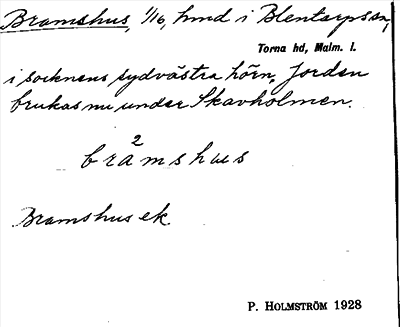 Bramshus, 1/16, hmd i Blentarps sn,
Torna hd, Malm. l.
i socknens sydvästra hörn. Jorden
brukas nu under Skavholmen.
2
bramshus
Bramshus ek.
P. HOLMSTRÖM 1928